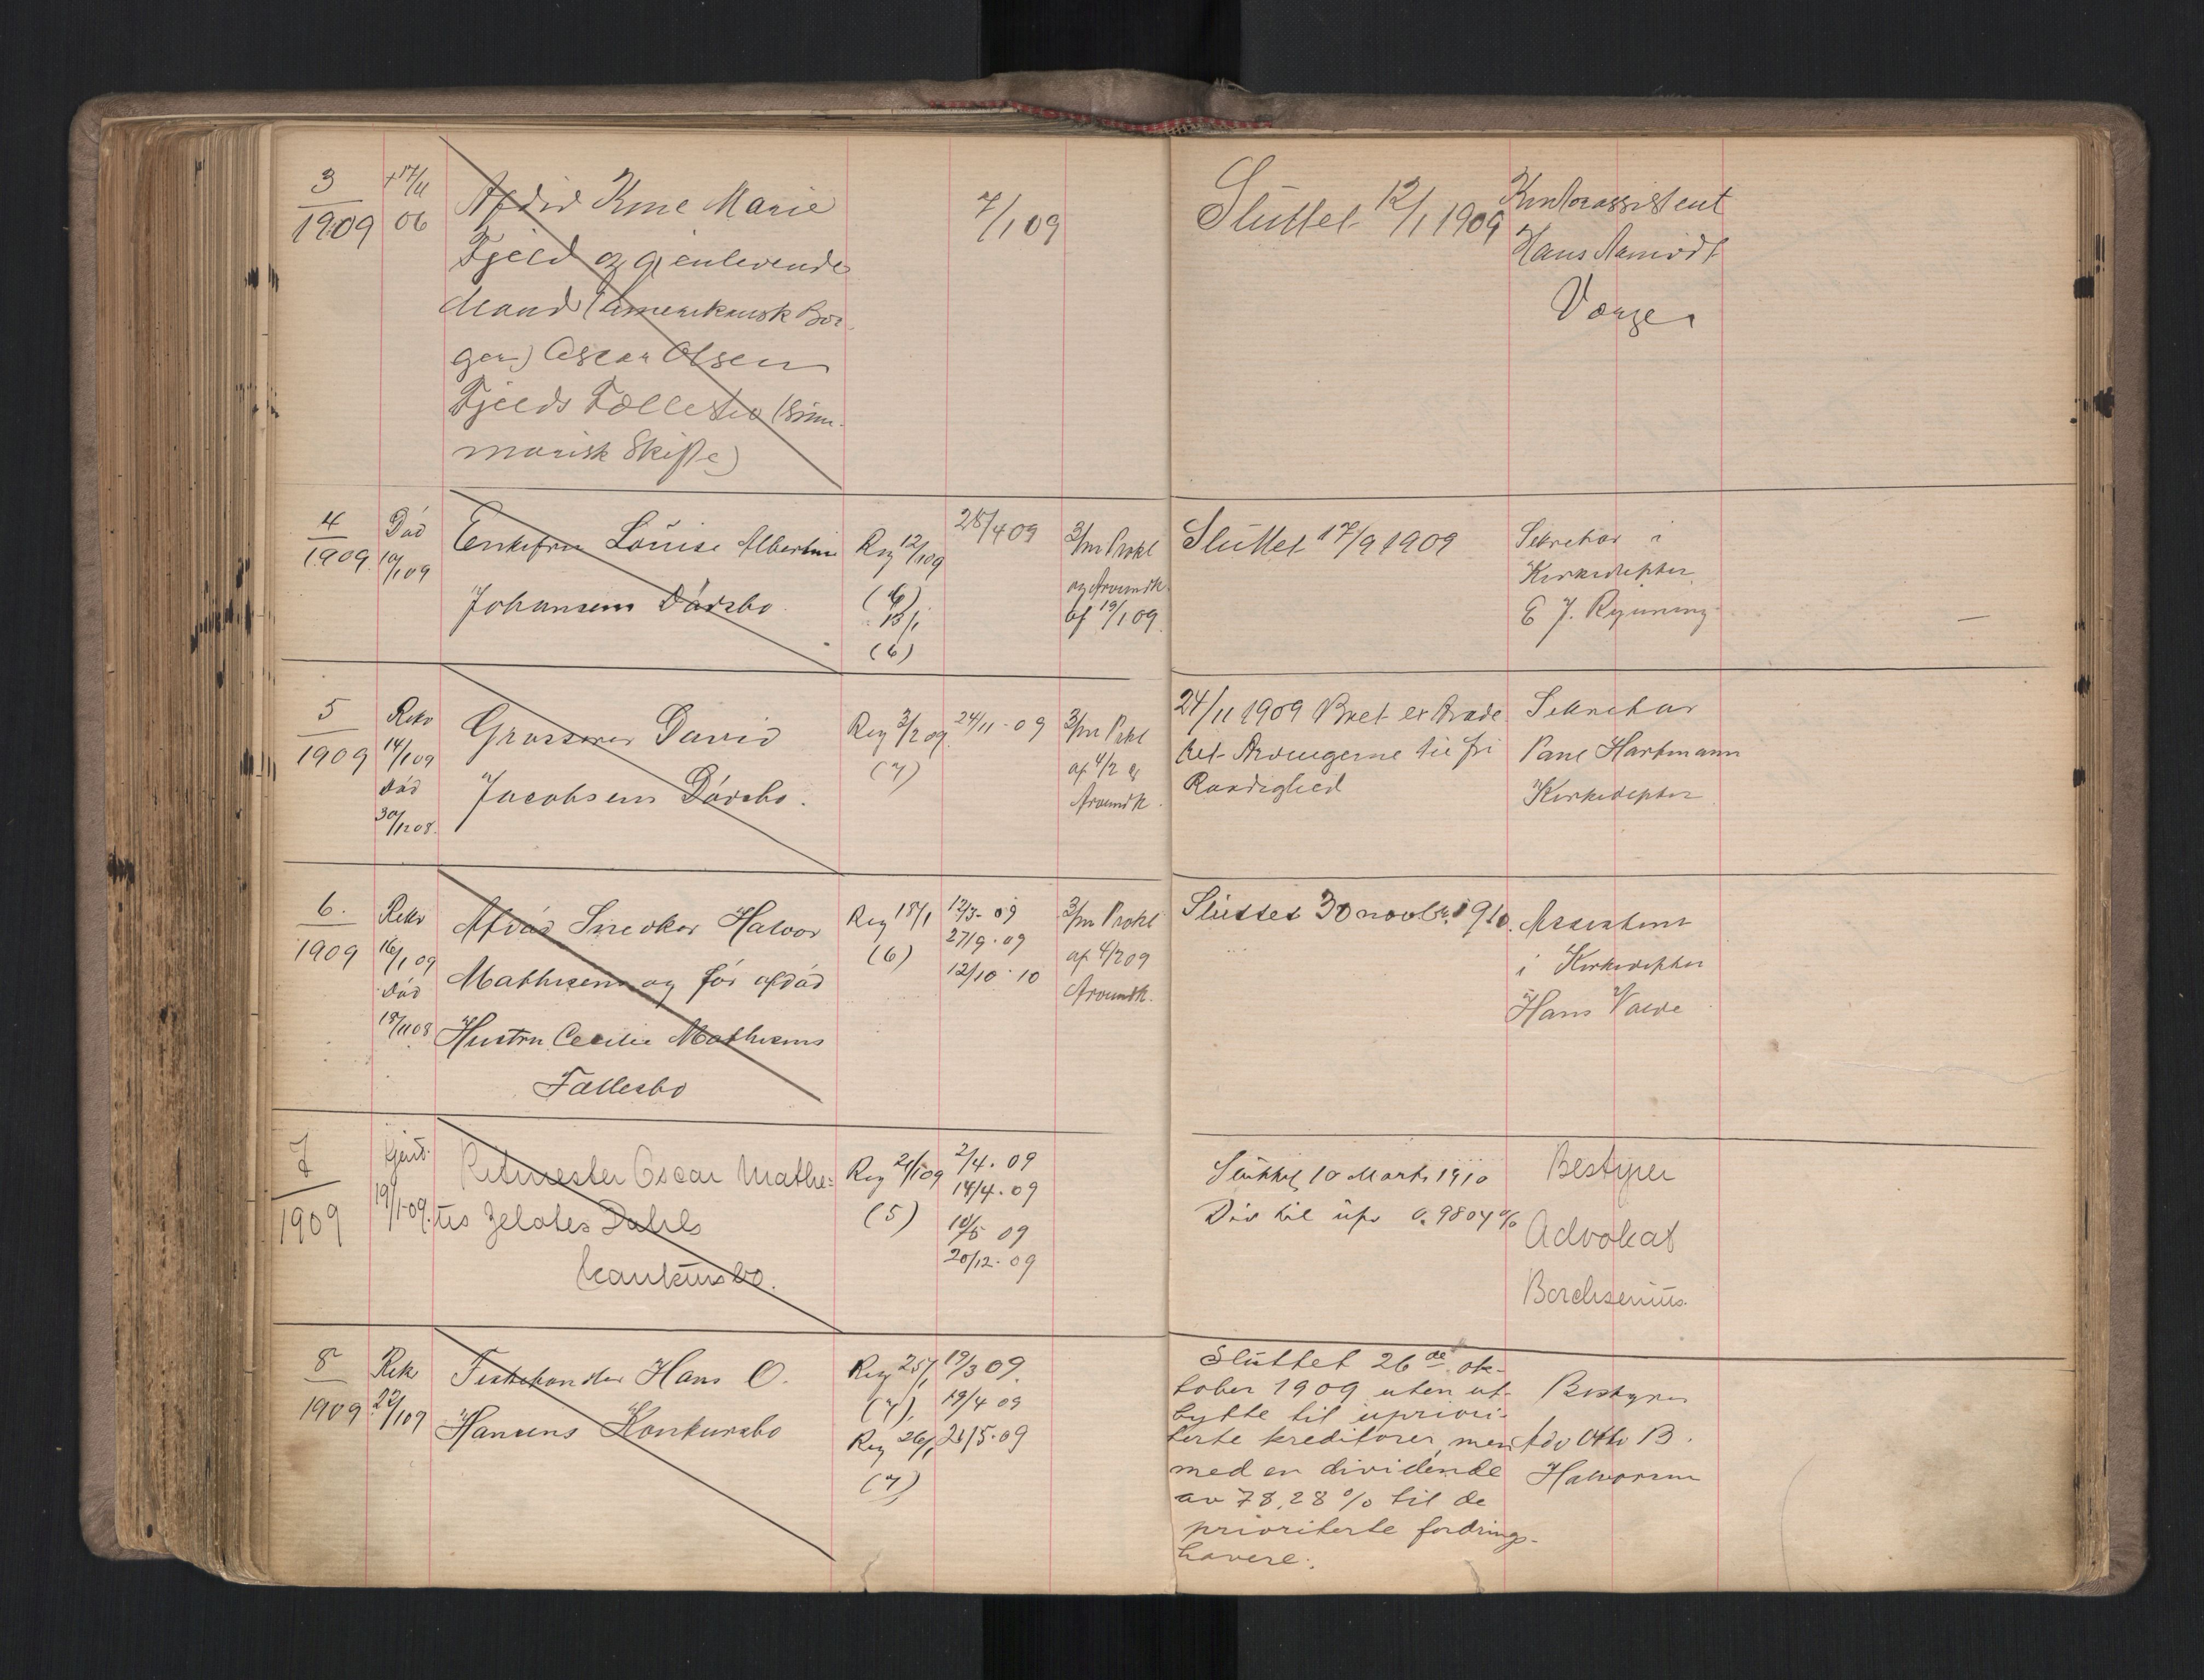 3
1909
+ 17/11
06
Afdød Kine Marie
Fjeld og gjenlevende
Mand (amerikansk Bor-
ger) Oscar Olsen
Fjelds Fællesbo (sum-
marisk Skifte)
7/1 09
Sluttet 12/1 1909
Kontorassistent
Hans Aamodt
Værge
4
1909
Død
10/1 09
Enkefru Louise Albertine
Johansens Dødsbo.
Reg 12/1 09
(6)
13/1
(6)
28/4 09
3/m Prokl
og Arvemdk.
af 19/1 09
Sluttet 17/9 1909
Sekretær i
Kirkedeptet
E J. Rynning
5
1909
Rekv
14/1 09
Død
30/12 08.
Grosserer David
Jacobsens Dødsbo.
Reg 3/2 09
(7)
24/11 - 09
3/m Prkl
af 4/2 &
Arvemdk.
24/11 1909 Boet extrade
ret Arvingerne til fri
Raadighed
Sekretær
Paul Hartmann
Kirkedeptet
6.
1909
Rekv
16/1 09
Død
18/11 08
Afdød Snedker Halvor
Mathisens og før afdød
Hustru Cecilie Mathisens
Fællesbo
Reg 18/1
(6)
12/3 - 09
27/9 - 09
12/10 - 10
3/m Prokl
af 4/2 09
Arvemdk.
Sluttet 30 novbr. 1910.
Assistent
i Kirkedeptet
Hans
7
1909
Kjend.
19/1-09.
Ritmester Oscar Mathe-
us Zelotes Dahls
konkursbo.
Reg 21/1 09
(5)
2/4 - 09
14/4 - 09
10/5 09
20/12 - 09
Sluttet 10 Marts 1910
Div til upr 0.9804 %
Bestyrer
Advokat
Borchsenius.
8
1909
Rek
22/1 09
Fiskehandler Hans O.
Hansens Konkursbo
Reg 25/1
(7).
Reg 26/1
(7)
19/3 09.
19/4 09
21/5 - 09
Sluttet 26de ok-
tober 1909 uten ut-
bytte til upriori-
terte kreditorer, men
med en dividende
av 78,28 % til de
prioriterte fordrings-
havere.
Bestyrer
Adv Otto B.
Halvorsen